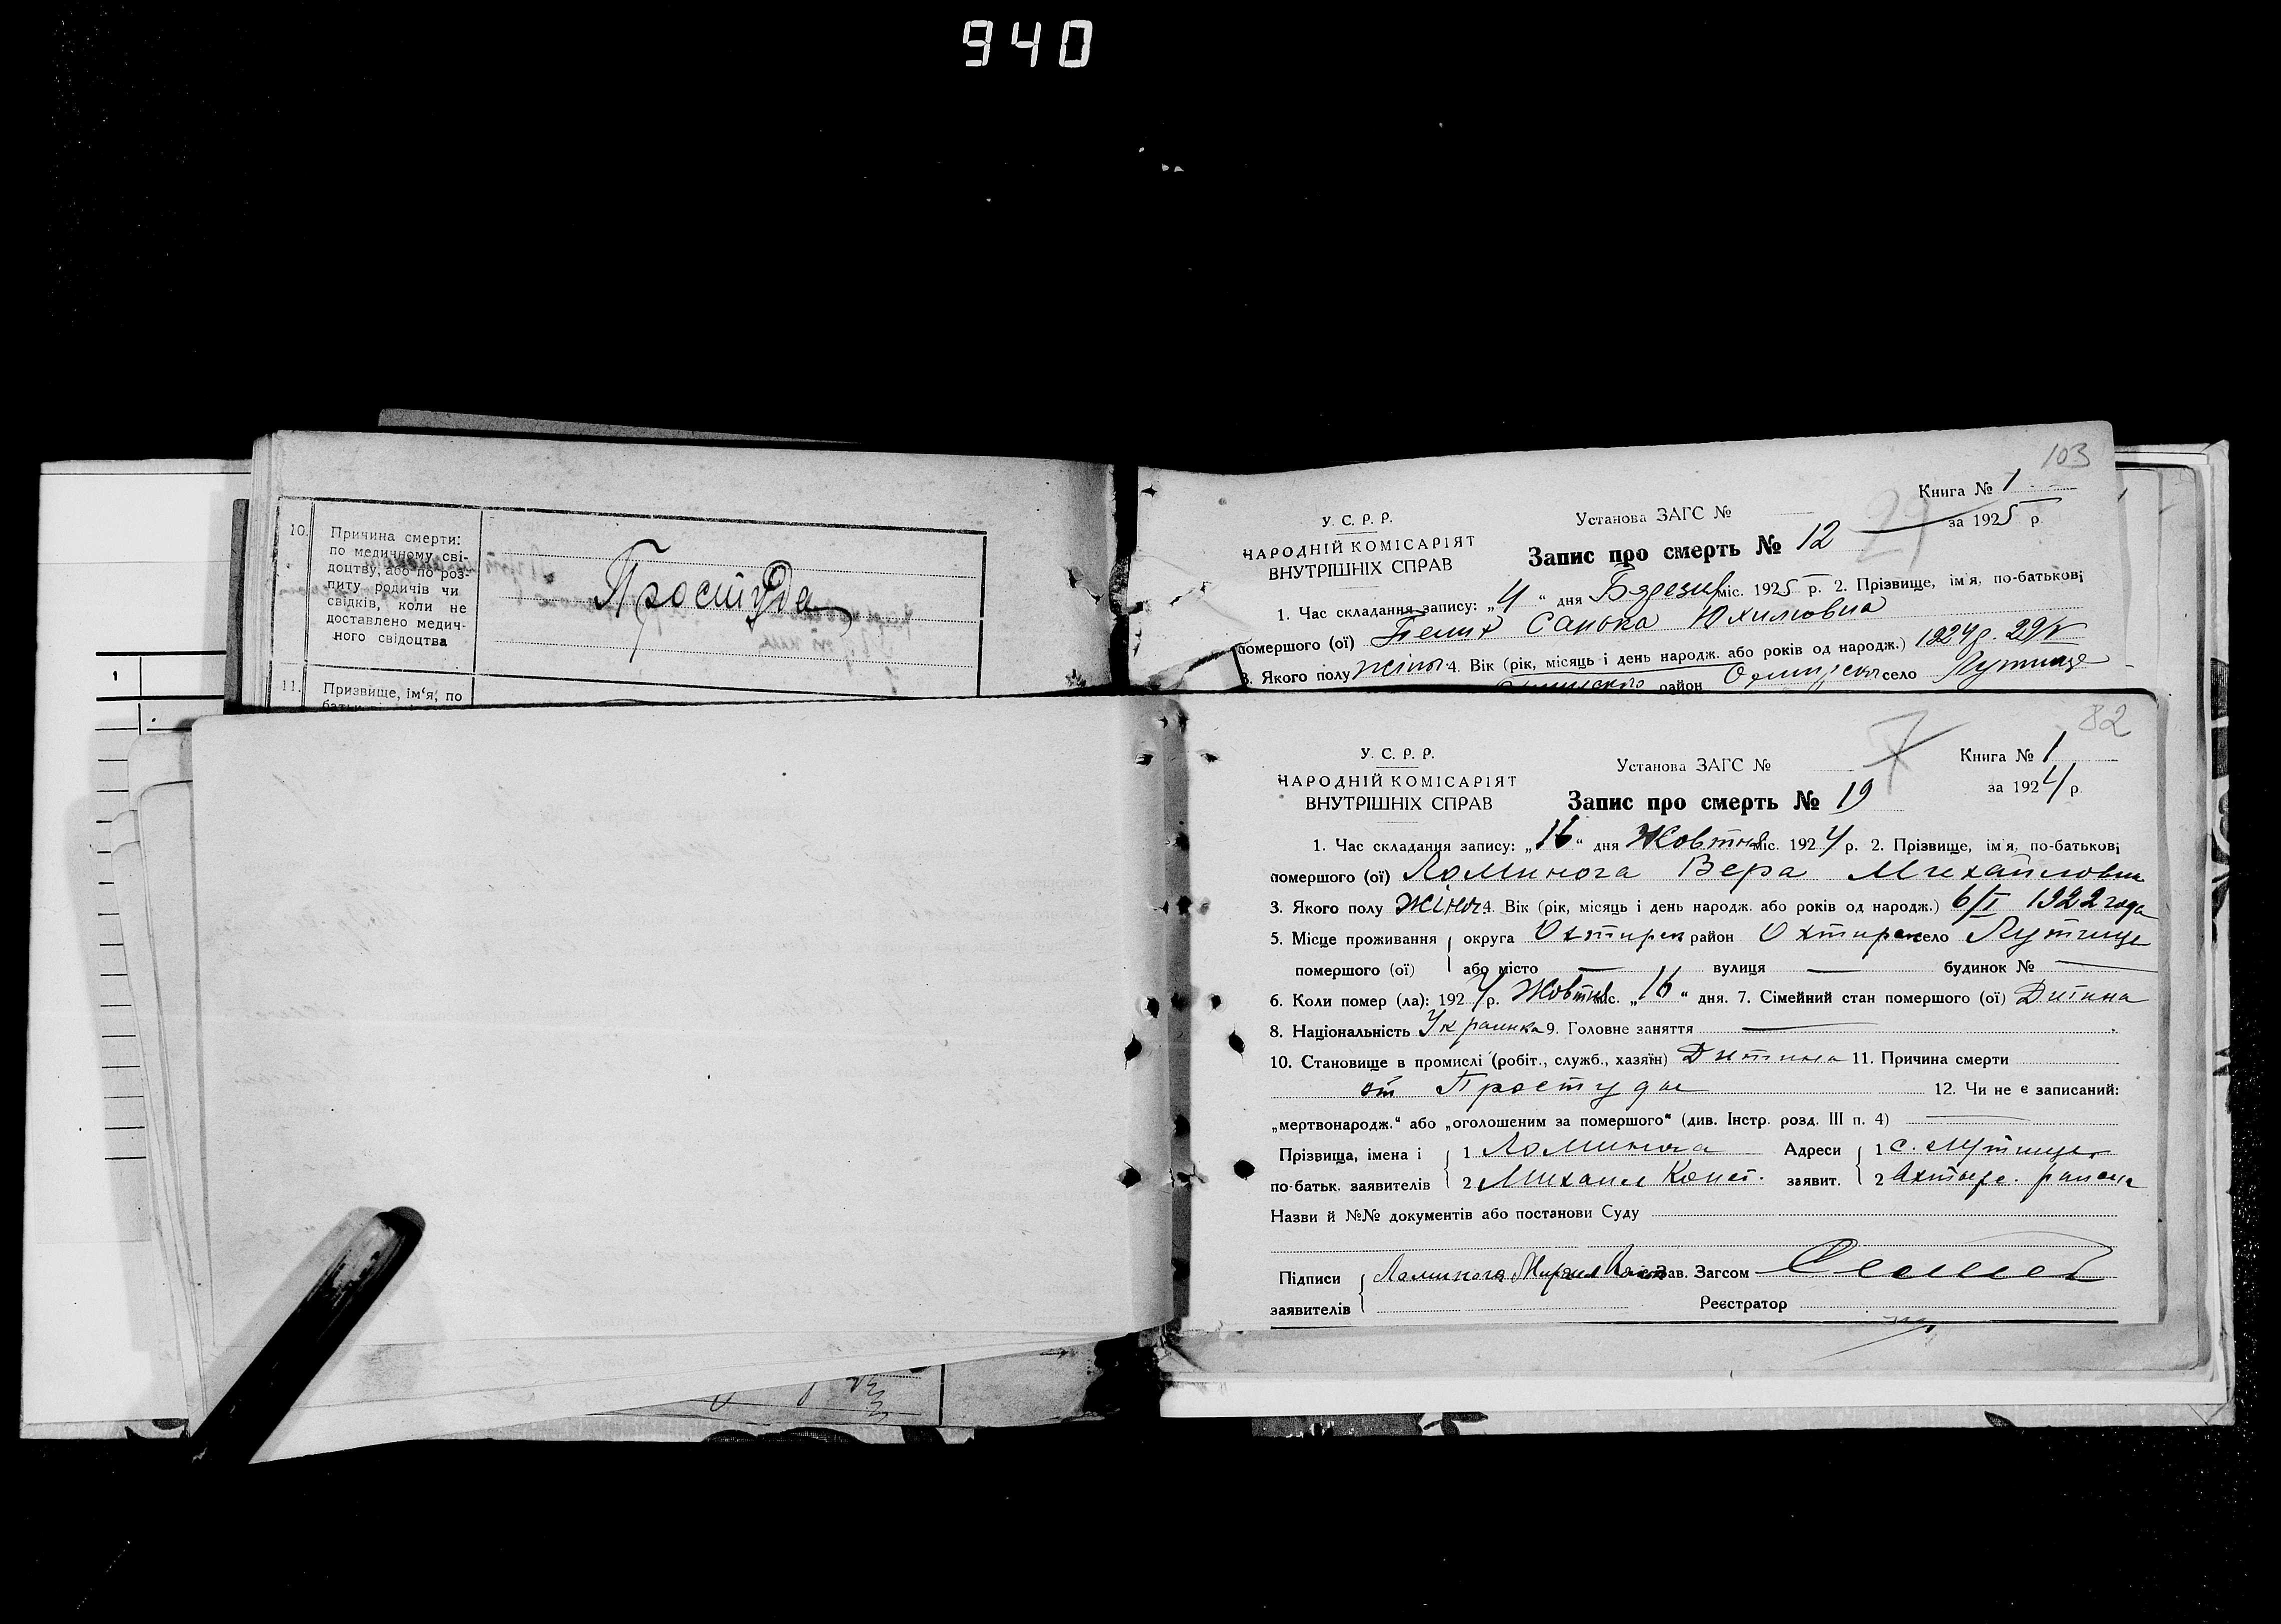 940
10. Причина смерти:
по медичному сві-
доцтву, або по роз-
питу родичів чи
свідків, коли не
доставлено медич-
ного свідоцтва
Простуда
11. Призвище, ім'я, по
1
103
Книга № 1
У. С. Р. Р.
Установа ЗАГС №
за 1925 р.
НАРОДНІЙ КОМІСАРІЯТ
ВНУТРІШНІХ СПРАВ
Запис про смерть № 12
1. Час складання запису: „4“ дня міс. 1925 р. 2. Прізвище, ім'я, по-батькові
помершого (ої) Юхимовна
3. Якого полу жіноч. 4. Вік (рік, місяць і день народж. або років од народж.) 1924 р. 29/V
район село Лутище
82
7
У. С. Р. Р.
Установа ЗАГС №
Книга № 1
НАРОДНІЙ КОМІСАРІЯТ
за 1924 р.
ВНУТРІШНІХ СПРАВ
Запис про смерть № 19
1. Час складання запису: „16“ дня Жовтня міс. 1924 р. 2. Прізвище, ім'я, по-батькові
помершого (ої) Ломинога Вера Михайловна
3. Якого полу Жіноч. 4. Вік (рік, місяць і день народж. або років од народж.) 6/I 1922 года
5. Місце проживання округа Охтирск район Охтирск село Лутище
помершого (ої) або місто — вулиця — будинок № —
6. Коли помер (ла): 1924 р. Жовтня міс. „16“ дня. 7. Сімейний стан помершого (ої) Дитина
8. Національність Украинка 9. Головне заняття —
10. Становище в промислі (робіт., служб., хазяїн) Дитина 11. Причина смерти
от Простуды 12. Чи не є записаний:
„мертвонародж.“ або „оголошеним за помершого“ (див. Інстр. розд. III п. 4) —
Прізвища, імена і 1 Ломинога Адреси 1 с. Лутище
по-батьк. заявителів 2 Михаил Конст. заявит. 2 Ахтырс. района
Назви й №№ документів або постанови Суду
Підписи Ломинога Михаил Конст Зав. Загсом
заявителів Реєстратор